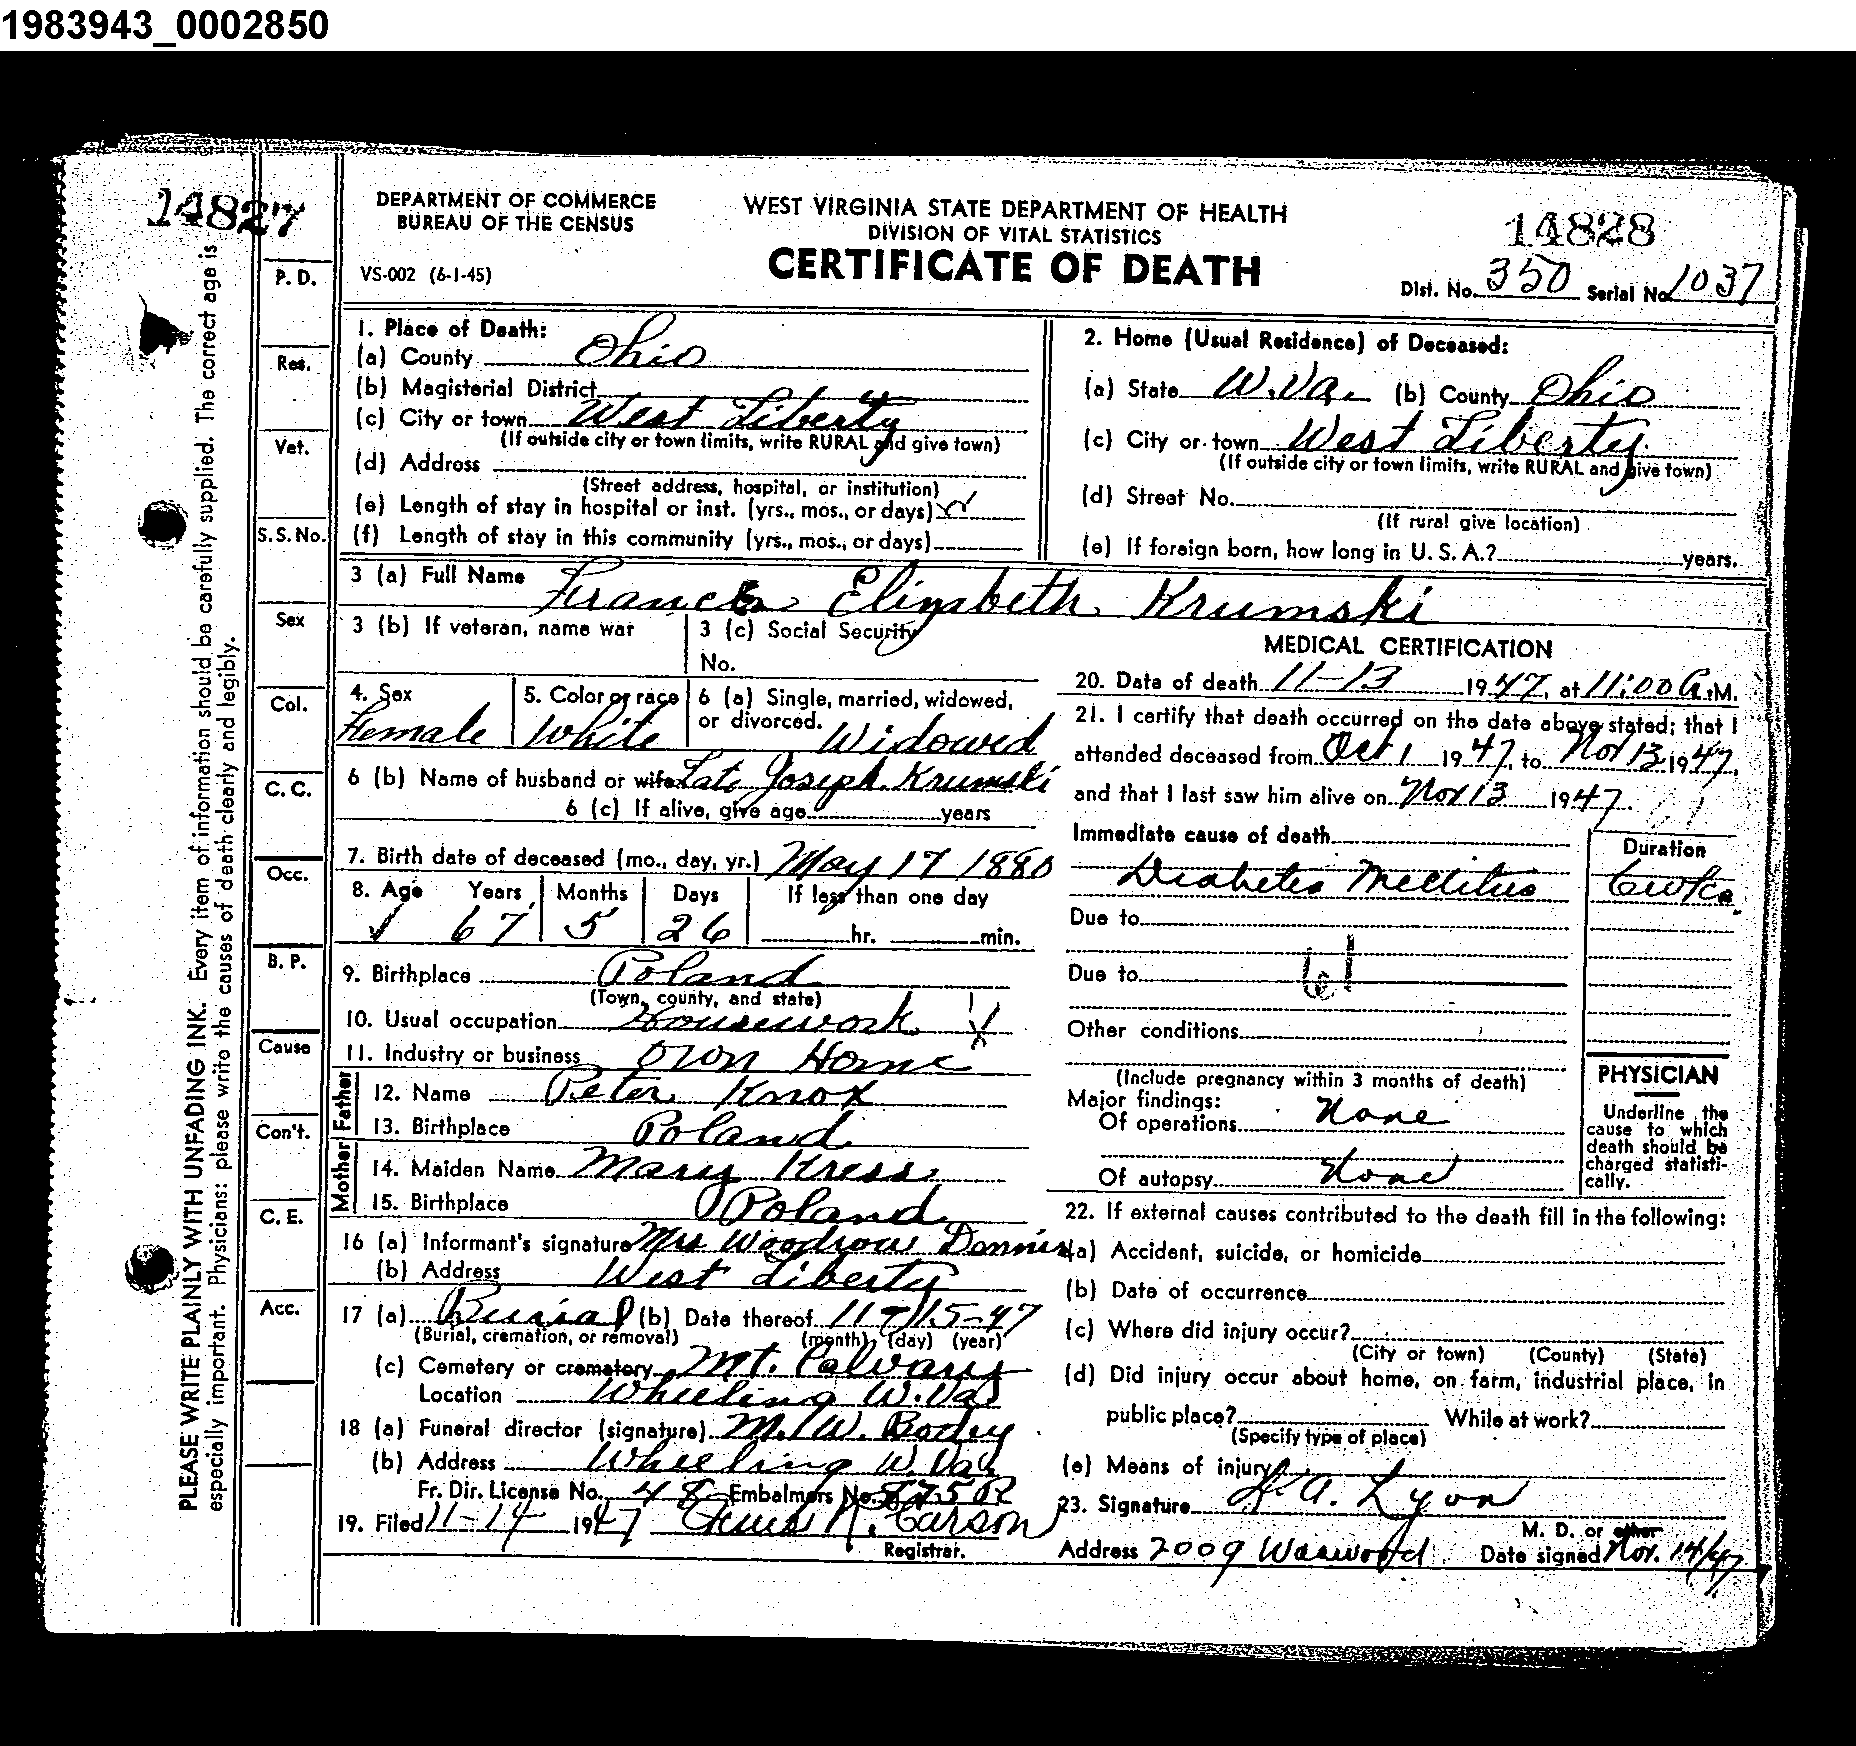 1983943_0002850
14827
14828
DEPARTMENT OF COMMERCE
BUREAU OF THE CENSUS
VS-002 (6-1-45)
WEST VIRGINIA STATE DEPARTMENT OF HEALTH
DIVISION OF VITAL STATISTICS
CERTIFICATE OF DEATH
Dist. No. 350 Serial No. 1037
PLEASE WRITE PLAINLY WITH UNFADING INK. Every item of information should be carefully supplied. The correct age is
especially important. Physicians: please write the causes of death clearly and legibly.
P. D.
Res.
Vet.
S.S. No.
Sex
Col.
C. C.
Occ.
B. P.
Cause
Con't.
C. E.
Acc.
1. Place of Death:
(a) County Ohio
(b) Magisterial District
(c) City or town West Liberty
(If outside city or town limits, write RURAL and give town)
(d) Address
(Street address, hospital, or institution)
(e) Length of stay in hospital or inst. (yrs., mos., or days)
(f) Length of stay in this community (yrs., mos., or days)
2. Home (Usual Residence) of Deceased:
(a) State W. Va. (b) County Ohio
(c) City or town West Liberty
(If outside city or town limits, write RURAL and give town)
(d) Street No.
(If rural give location)
(e) If foreign born, how long in U. S. A.? years.
3 (a) Full Name Frances Elizabeth Krumski
3 (b) If veteran, name war
3 (c) Social Security
No.
4. Sex
Female
5. Color or race
White
6 (a) Single, married, widowed,
or divorced. Widowed
6 (b) Name of husband or wife Late Joseph Krumski
6 (c) If alive, give age years
7. Birth date of deceased (mo., day, yr.) May 17 1880
8. Age Years Months Days If less than one day
67 5 26 hr. min.
9. Birthplace Poland
(Town, county, and state)
10. Usual occupation Housework
11. Industry or business Own Home
Father
12. Name Peter Knox
13. Birthplace Poland
Mother
14. Maiden Name Mary Kress
15. Birthplace Poland
16 (a) Informant's signature Mrs Woodrow Dennis
(b) Address West Liberty
17 (a) Burial (b) Date thereof 11-15-47
(Burial, cremation, or removal) (month) (day) (year)
(c) Cemetery or crematory Mt. Calvary
Location Wheeling W. Va
18 (a) Funeral director (signature) M. W. Bodey
(b) Address Wheeling W. Va.
Fr. Dir. License No. 48 Embalmers No.
19. Filed 11-14 1947 R. Carson
Registrar.
MEDICAL CERTIFICATION
20. Date of death 11-13 1947, at 11:00 A.M.
21. I certify that death occurred on the date above stated; that I
attended deceased from Oct 1 1947, to Nov 13 1947,
and that I last saw him alive on Nov 13 1947
Immediate cause of death
Diabetes Mellitus
Duration
6 wks.
Due to
Due to 61
Other conditions
(Include pregnancy within 3 months of death)
Major findings:
Of operations None
Of autopsy None
PHYSICIAN
Underline the
cause to which
death should be
charged statisti-
cally.
22. If external causes contributed to the death fill in the following:
(a) Accident, suicide, or homicide
(b) Date of occurrence
(c) Where did injury occur?
(City or town) (County) (State)
(d) Did injury occur about home, on farm, industrial place, in
public place? While at work?
(Specify type of place)
(e) Means of injury
23. Signature A. Lyon
M. D. or other
Address 2009 Warwood Date signed Nov. 14/47